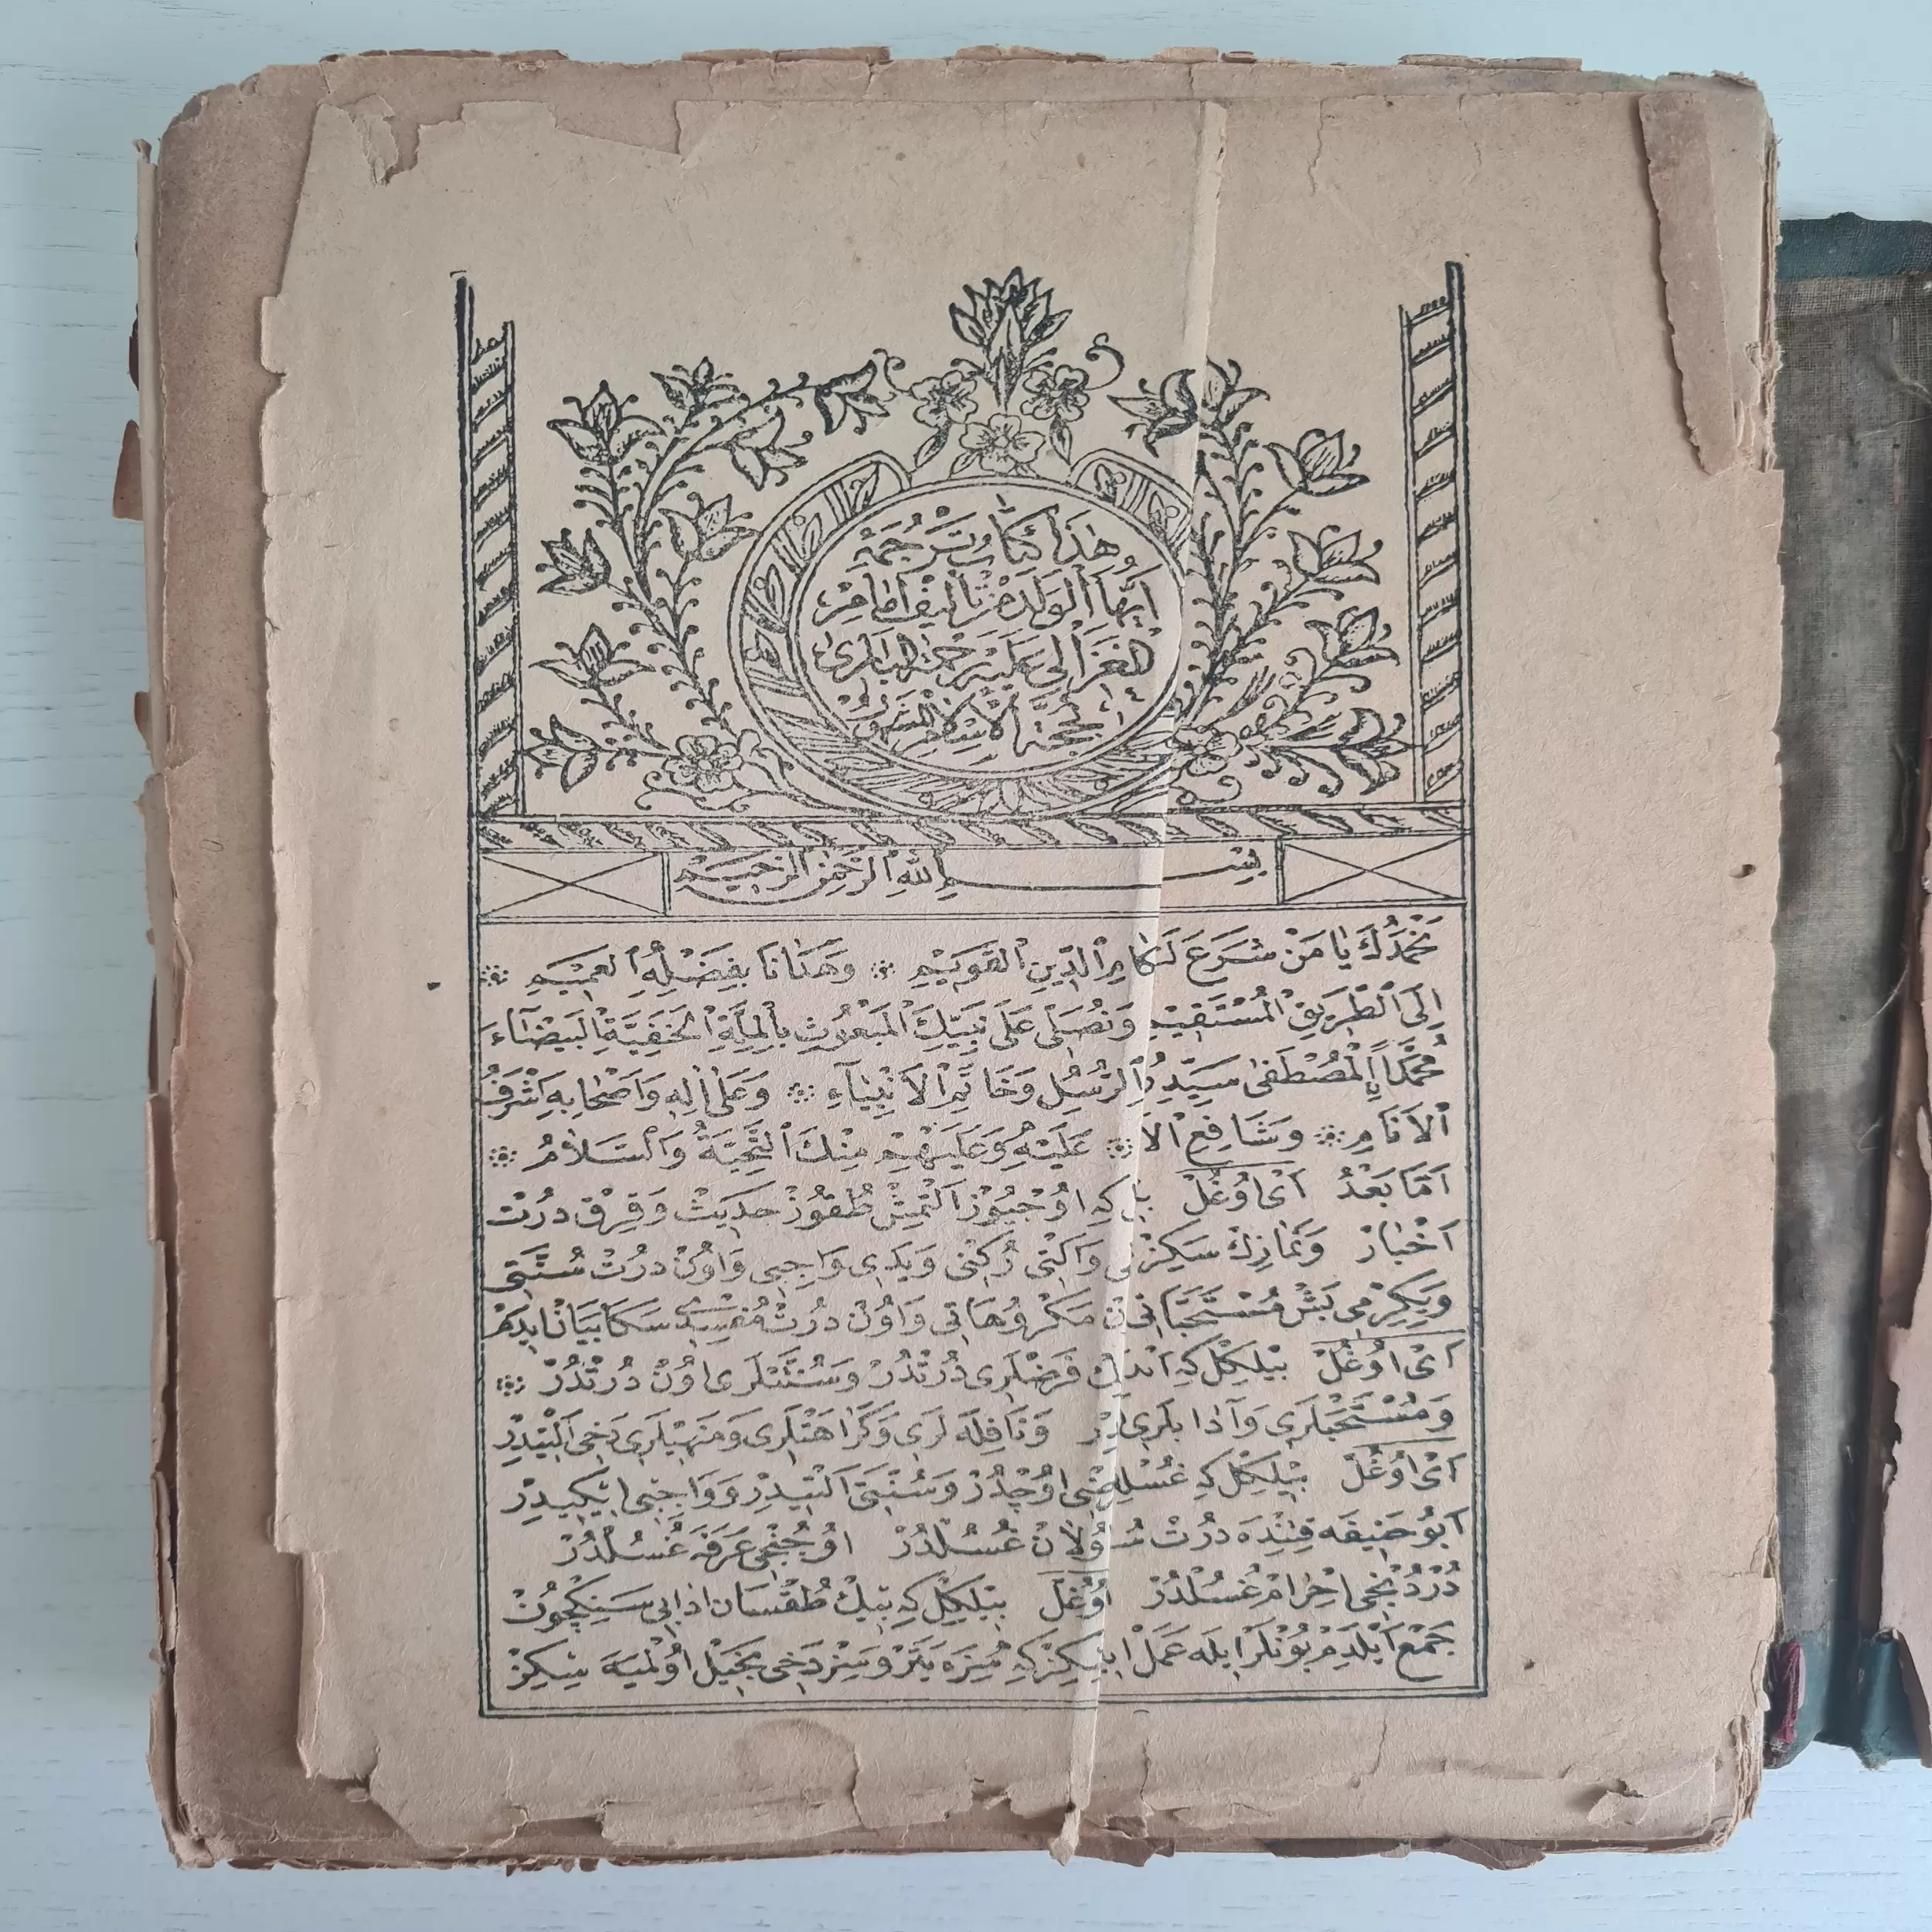 هٰذَا كِتَابُ تَرْجُمَهِٔ
اَيُّهَا الْوَلَدْ مِنْ تَأْلِيفِ اِمَامِ
الْغَزَالِى عَلَيْهِ رَحْمَةُ الْبَارِى
بِحُجَّةِ الْاِسْلَامِ
بِسْــــمِ اللّٰهِ الرَّحْمٰنِ الرَّحِيمِ
نَحْمَدُكَ يَا مَنْ شَرَعَ لَنَا الدِّينِ الْقَوِيْمِ ۞ وَهَدَانَا بِفَضْلِهِ الْعَمِيْمِ ۞
اِلَى الطَّرِيقِ الْمُسْتَقِيْمِ وَنُصَلِّى عَلَى نَبِيِّكَ الْمَبْعُوثِ بِالْمِلَّةِ الْحَنَفِيَّةِ الْبَيْضَآءِ
مُحَمَّدٍ الْمُصْطَفٰى سَيِّدِ الرُّسُلِ وَخَاتَمِ الْاَنْبِيَآءِ ۞ وَعَلٰى اٰلِهِ وَاَصْحَابِهِ اَشْرَفُ
الْاَنَامِ ۞ وَشَافِعِ الْا ۞ عَلَيْهِ وَعَلَيْهِمْ مِنْكَ التَّحِيَّةُ وَالسَّلَامُ ۞
اَمَّا بَعْدُ اَىْ اوُغُلْ بِل كِه اوُچيُوزْ اَلْتمِشْ طُقوُزْ حَدِيثْ وَقِرْق دُرْتْ
اَخْبَارْ وَنَمَازِكْ سَكِزْ نى وَاَلْتى رُكِنْى وَيَدِى وَاجِبِى وَاوُنْ دُرْتْ سُنَّتِى
وَيِكِرْمِى بَشْ مُسْتَحَبَّاتِى نْ مَكْرُوهَاتِى وَاوُنْ دُرْتْ مُفْسِدِى سَكَا بَيَانْ ايدَمْ
اَىْ اوُغُلْ بِيْلكِلْ كِه اَبْدَسْتك فَرْضْلَرِى دُرْتْدُرْ وَسُنَّتْلَرِى اوُنْ دُرْتْدُرْ ۞
وَمُسْتَحَبْلَرِى وَآدَابلَرِى دِرْ وَنَافِلَه لَرِى وَكَرَاهَتْلَرِى وَمَنْهِيْلَرِى دَخِى اَلْتيدِرْ
اَىْ اوُغُلْ بِيْلكِلْ كِه غُسْلِك نى اوُچْدُرْ وَسُنَّتى اَلْتيدِرْ وَوَاجِبِى ايْكِيدِرْ
اَبوُ حَنِيفَه قَتِنْدَه دُرْتْ سُـ وُلَانْ غُسُلْدُرْ اوُچُنْجِى عَرَفَه غُسُلْدُرْ
دُرْدُنْجِى اِحْرَامْ غُسُلْدُرْ اوُغُلْ بِيْلكِلْ كِه بيك طُقْسَان اَدَابِى سَنِكْچُونْ
جَمْع اَيْلَدِمْ بوُنْلَر ايلَه عَمَلْ ايْدِكِزْ كِه سِزَه يَتَرْ وَسِزْ دَخِى بَخِيلْ اوُلْميَه سِكِزْ